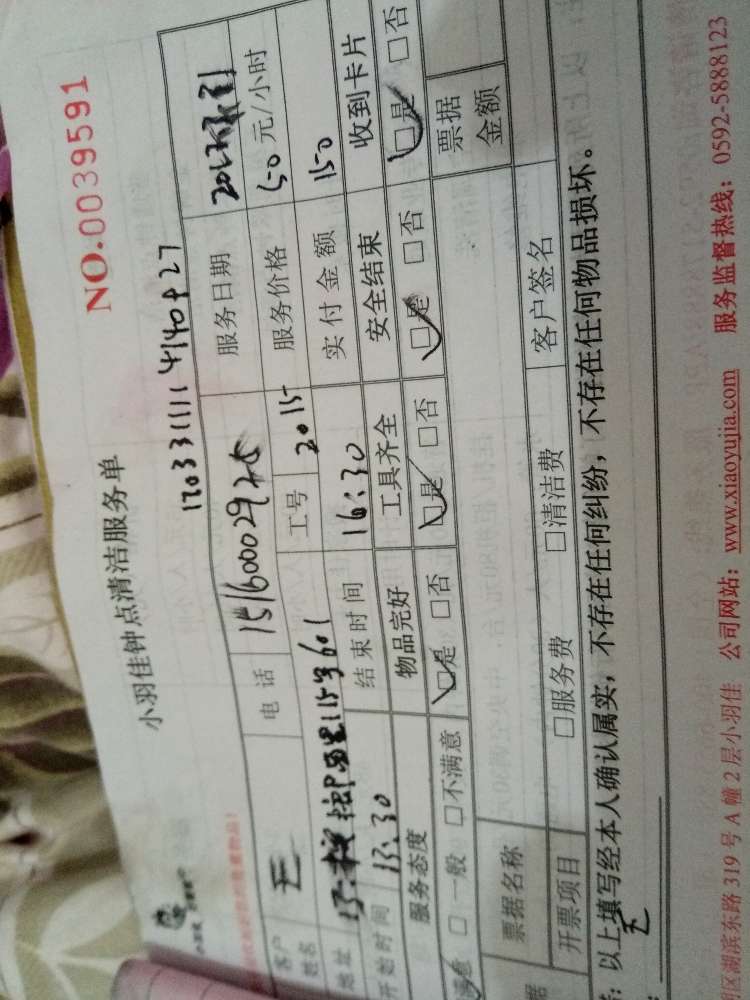 NO.0039591
小羽佳钟点清洁服务单
客户姓名 王 电话 15160002925 服务日期
地址 工号 2015 服务价格 50 元/小时
开始时间 13:30 结束时间 16:30 实付金额 150
服务态度 物品完好 工具齐全 安全结束 收到卡片
满意 □ 一般 □不满意 □是 □否 □是 □否 □是 □否 □是 □否
票据名称 票据金额
开票项目 □服务费 □清洁费 客户签名
以上填写经本人确认属实，不存在任何纠纷，不存在任何物品损坏。
区湖滨东路 319 号 A 幢 2 层小羽佳 公司网站：www.xiaoyujia.com 服务监督热线：0592-5888123